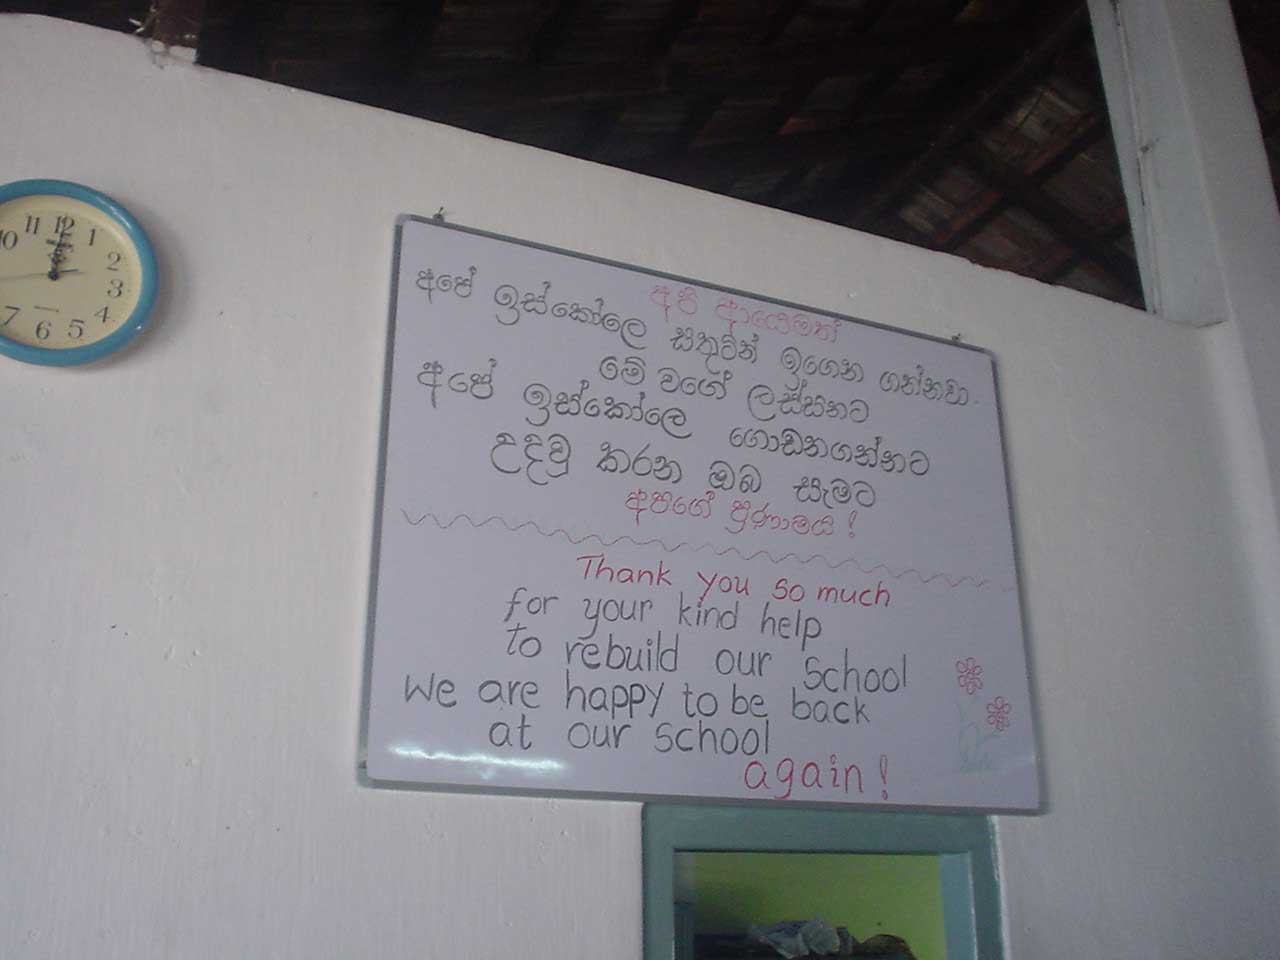 11 12 1
10 2
3
7 6 5 4
අපි ආයෙමත්
අපේ ඉස්කෝලෙ සතුටින් ඉගෙන ගන්නවා.
මේ වගේ ලස්සනට
අපේ ඉස්කෝලෙ ගොඩනගන්නට
උදවු කරන ඔබ සැමට
අපගේ ප්‍රණාමය!
Thank you so much
for your kind help
to rebuild our School
We are happy to be back
at our school
again!